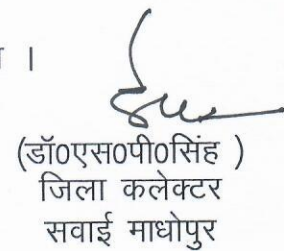 ।
(डॉ0एस0पी0सिंह )
जिला कलेक्टर
सवाई माधोपुर